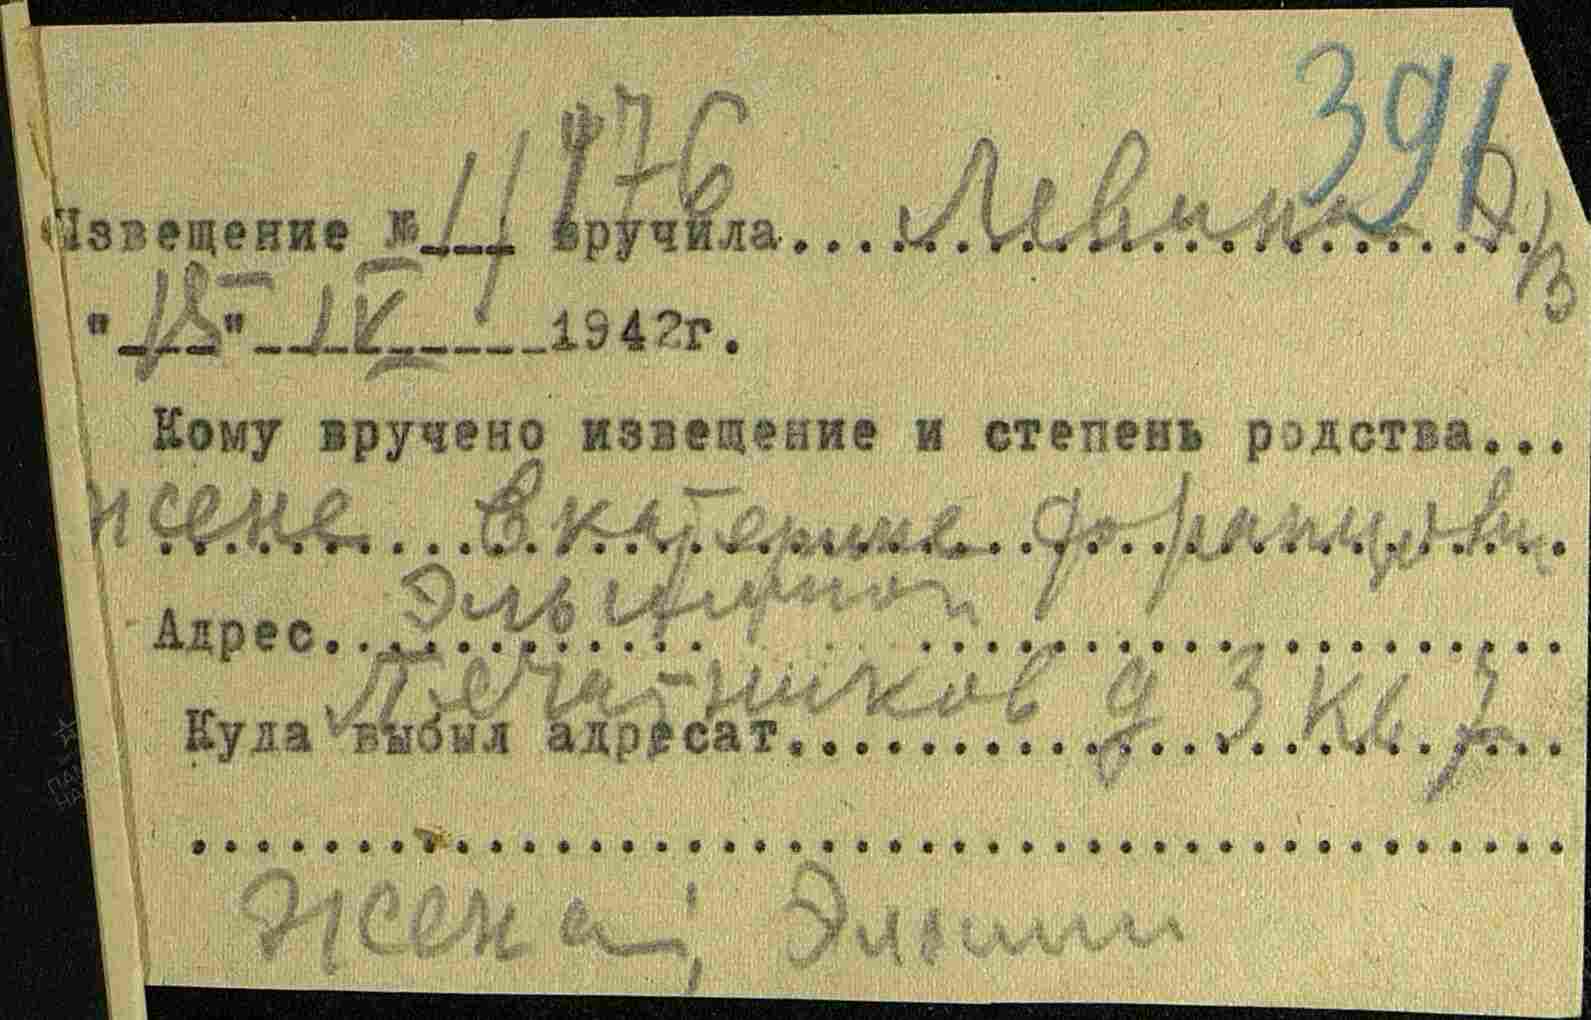 391
Извещение № 11476 вручила Левина
"15" IV 1942г.
Кому вручено извещение и степень родства...
жене Екатерине Францовн
Адрес
Печатников д 3 кв 7
Куда выбыл адресат
жена;